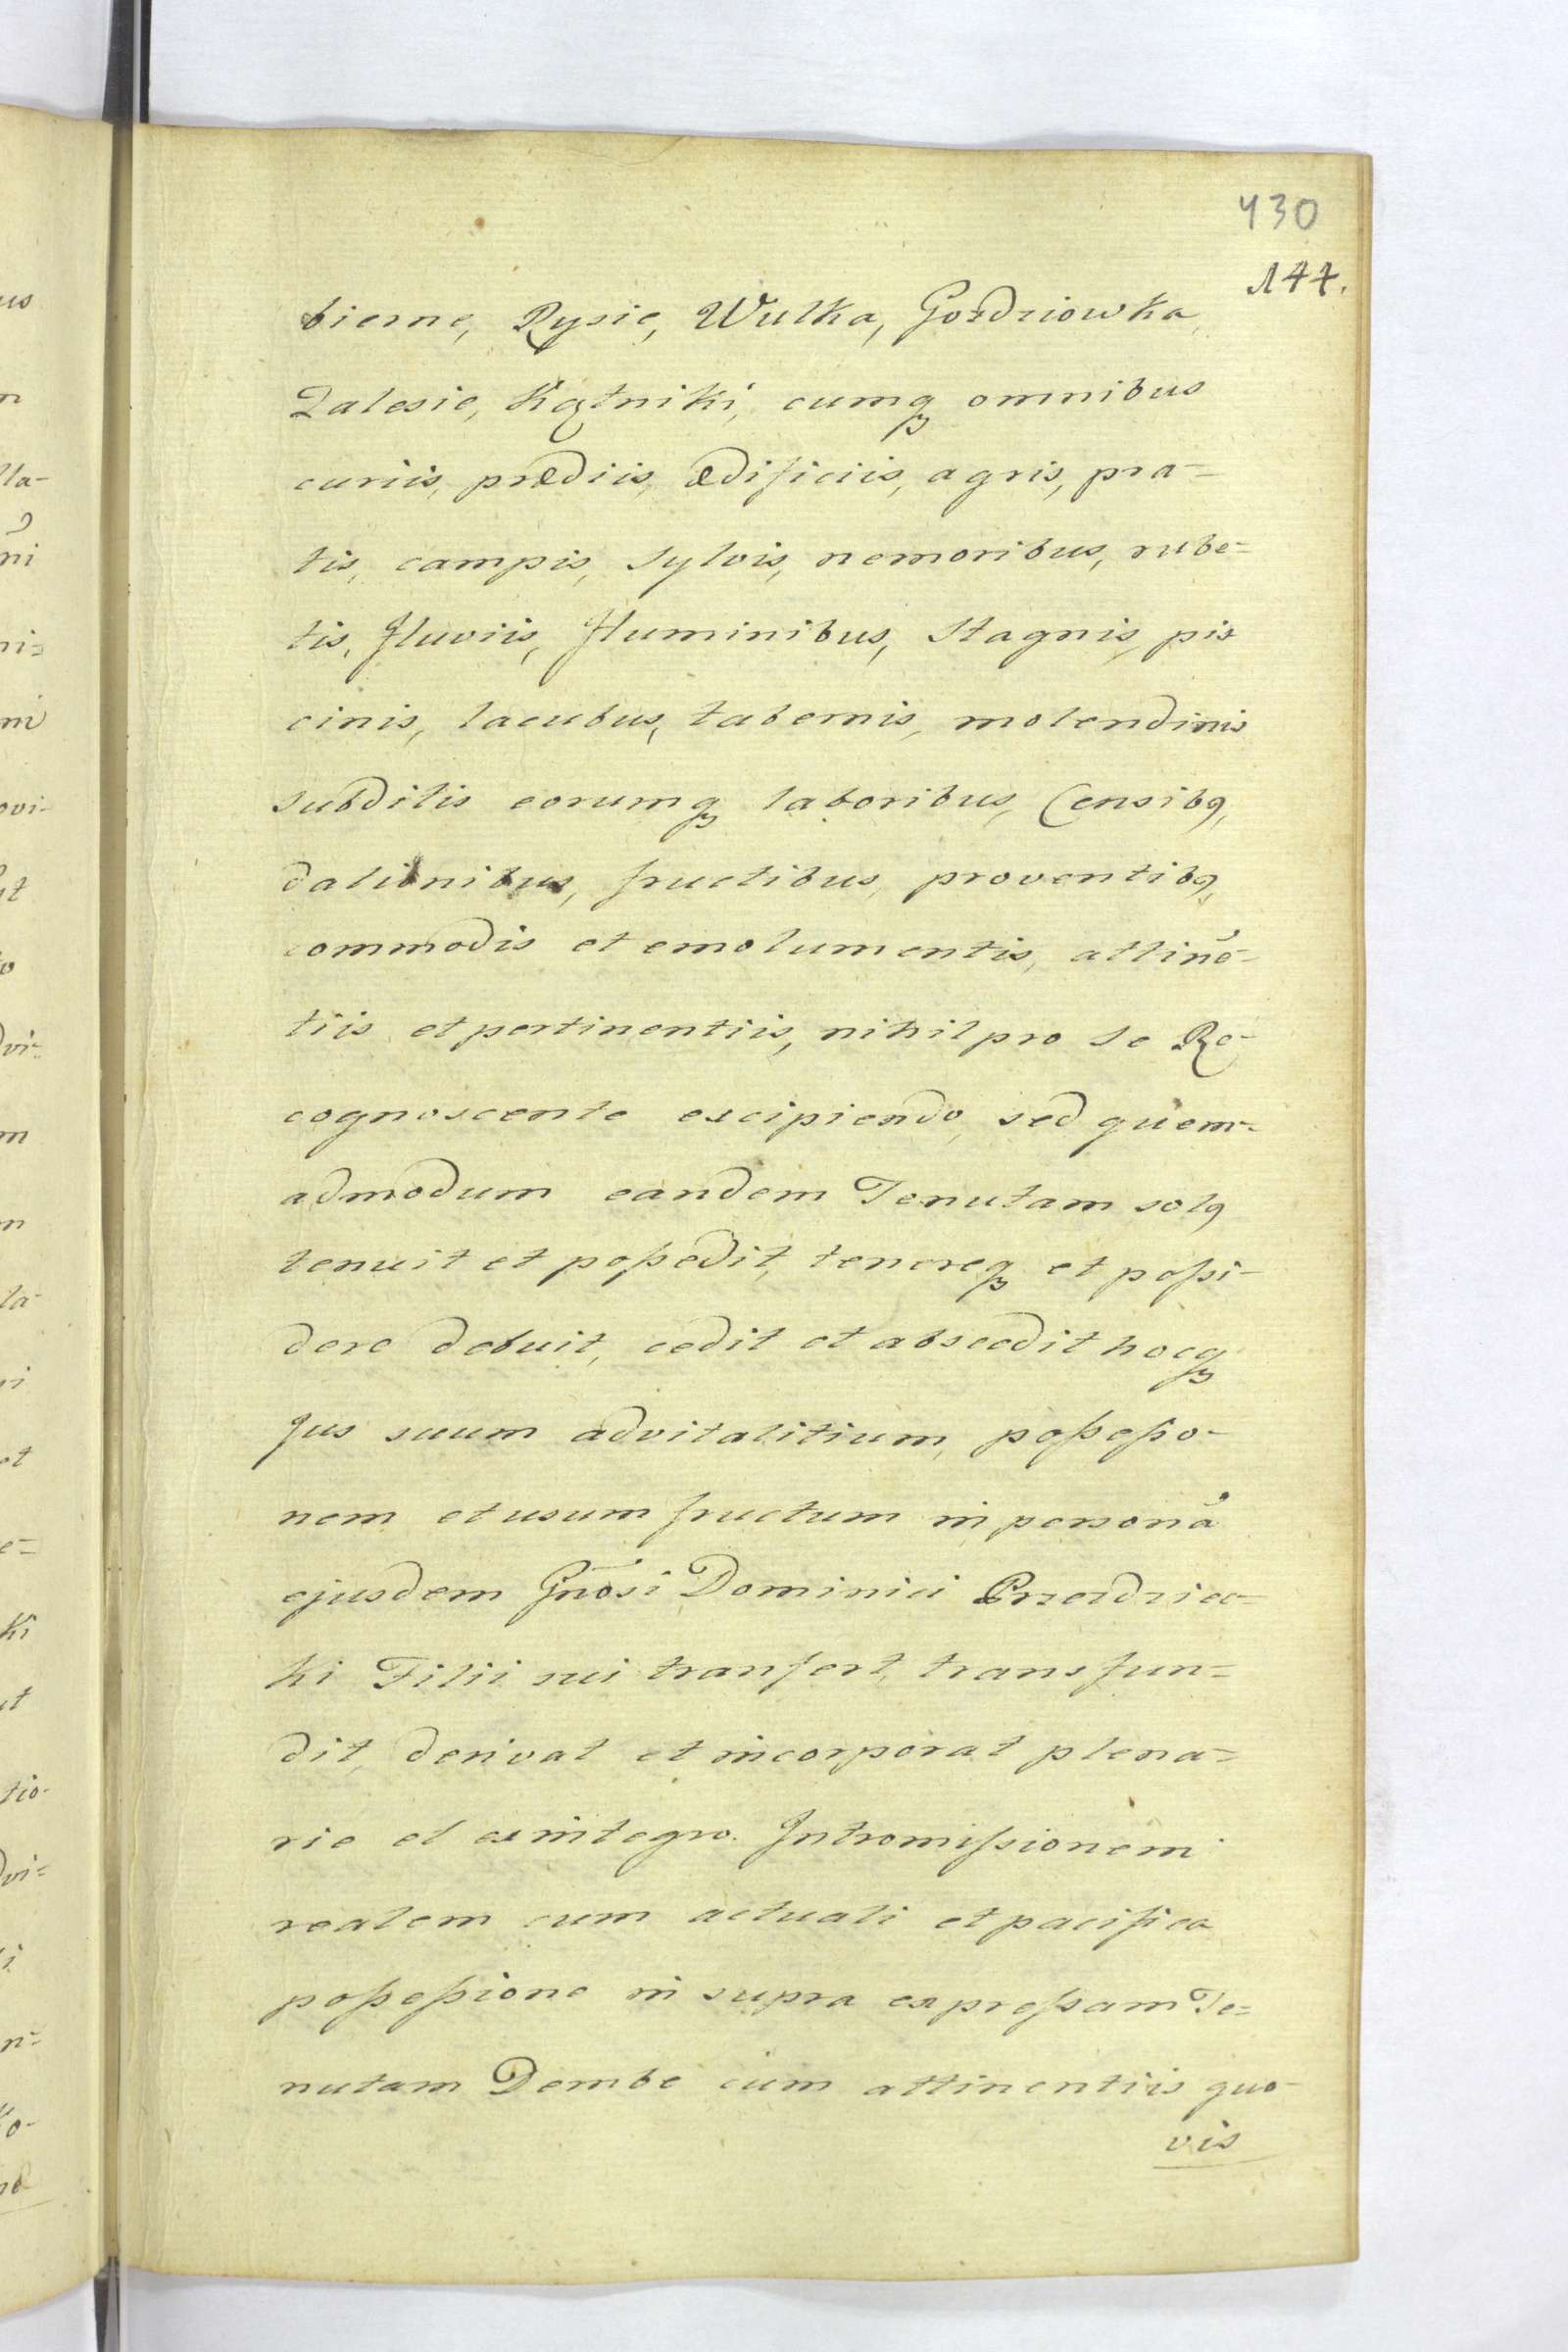 430
144.
bierne, Rysie, Wulka, Gozdziowka
Zalesie, Kątniki, cumqꝫ omnibus
curiis, prædiis, ædificiis, agris, pra-
tis, campis, sylvis, nemoribus, rube-
tis, fluviis, fluminibus, stagnis, pis
cinis, lacubus, tabernis, molendinis
subditis eorumqꝫ laboribus, Censibꝯ,
dationibus, fructibus, proventibꝯ,
commodis et emolumentis, attinē-
tiis et pertinentiis, nihil pro se Re-
cognoscente excipiendo, sed quem-
admodum eandem Tenutam solꝯ
tenuit et poßedit, tenereqꝫ et poßi-
dere debuit, cedit et abscedit hocqꝫ
Jus suum advitalitium, poßeßio-
nem et usum fructum in personā
ejusdem Gnōsi Dominici Przezdziec-
ki Filii sui tranfert, transfun=
dit, derivat et incorporat plena=
rie et ex integro. Intromißionem
realem cum actuali et pacifica
poßeßione in supra expreßam Te=
nutam Dembe cum attinentiis quo-
vis